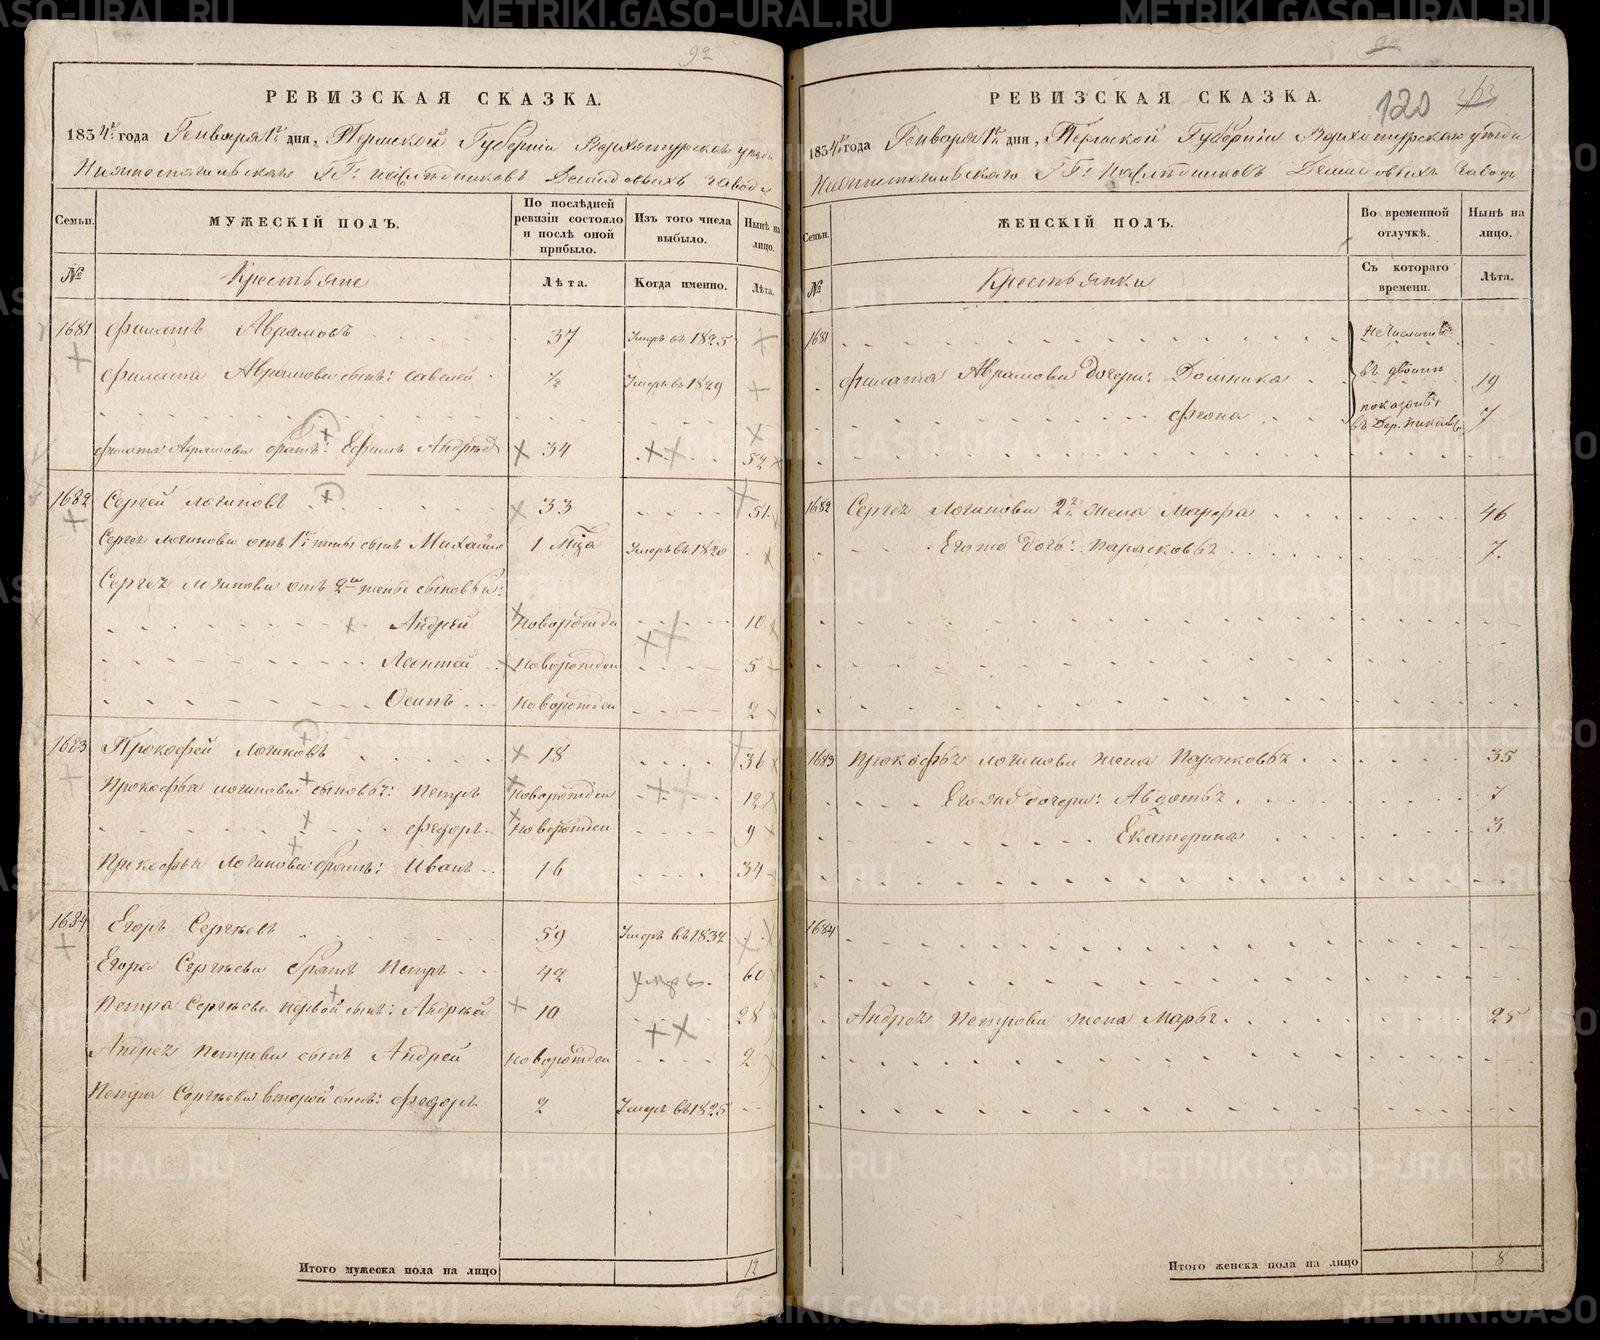 92
РЕВИЗСКАЯ СКАЗКА.
1834го года Генваря 1го дня, Пермской Губерніи Верхотурскаго уезда
Нижнотагильскаго ГГ: наследниковъ Демидовыхъ заводе
Семьи. МУЖЕСКІЙ ПОЛЪ. По послѣдней ревизіи состояло и послѣ оной прибыло. Изъ того числа выбыло. Нынѣ на лицо.
№ Крестьяне Лѣта. Когда именно. Лѣта.
1681 Филатъ Аврамовъ 37 Умеръ въ 1825
Филата Аврамова сынъ: Савелей 1/2 Умеръ въ 1829
Филата Аврамова братъ: Ефимъ Андреевъ 34 52
1682 Сергей Логиновъ 33 51
Сергея Логинова отъ 1й жены сынъ Михайло 1 Мца Умеръ въ 1820
Сергея Логинова отъ 2й жены сыновья:
Андрей Новорожден 10
Леонтей Новорожден 5
Осипъ Новорожден 2
1683 Прокофей Логиновъ 18 36
Прокофья Логинова сыновья: Петръ Новорожден 12
Федоръ Новорожден 9
Прокофья Логинова братъ: Иванъ 16 34
1684 Егоръ Сергеевъ 59 Умеръ въ 1832
Егора Сергеева братъ Петръ 42 умеръ. 60
Петра Сергеева первой сынъ: Андрей 10 28
Андрея Петрова сынъ Андрей Новорожден 2
Петра Сергеева второй сынъ: Федоръ 2 Умеръ въ 1825
Итого мужеска пола на лицо 12
120
РЕВИЗСКАЯ СКАЗКА.
1834го года Генваря 1го дня, Пермской Губерніи Верхотурскаго уезда
Нижнотагильскаго ГГ: Наследниковъ Демидовыхъ Заводе
Семьи. ЖЕНСКІЙ ПОЛЪ. Во временной отлучкѣ. Нынѣ на лицо.
№ Крестьянки Съ котораго времени. Лѣта.
1681
Филата Аврамова дочери: Домника въ двоине 19
Феона показаны 7
1682 Сергея Логинова 2я жена Марфа 46
Его же дочь: Парасковья 7.
1683 Прокофья Логинова жена Парасковья 35
Его же дочери: Авдотья 7
Екатерина 3
1684
Андрея Петрова жена Марья 25
Итого женска пола на лицо 8
METRIKI.GASO-URAL.RU